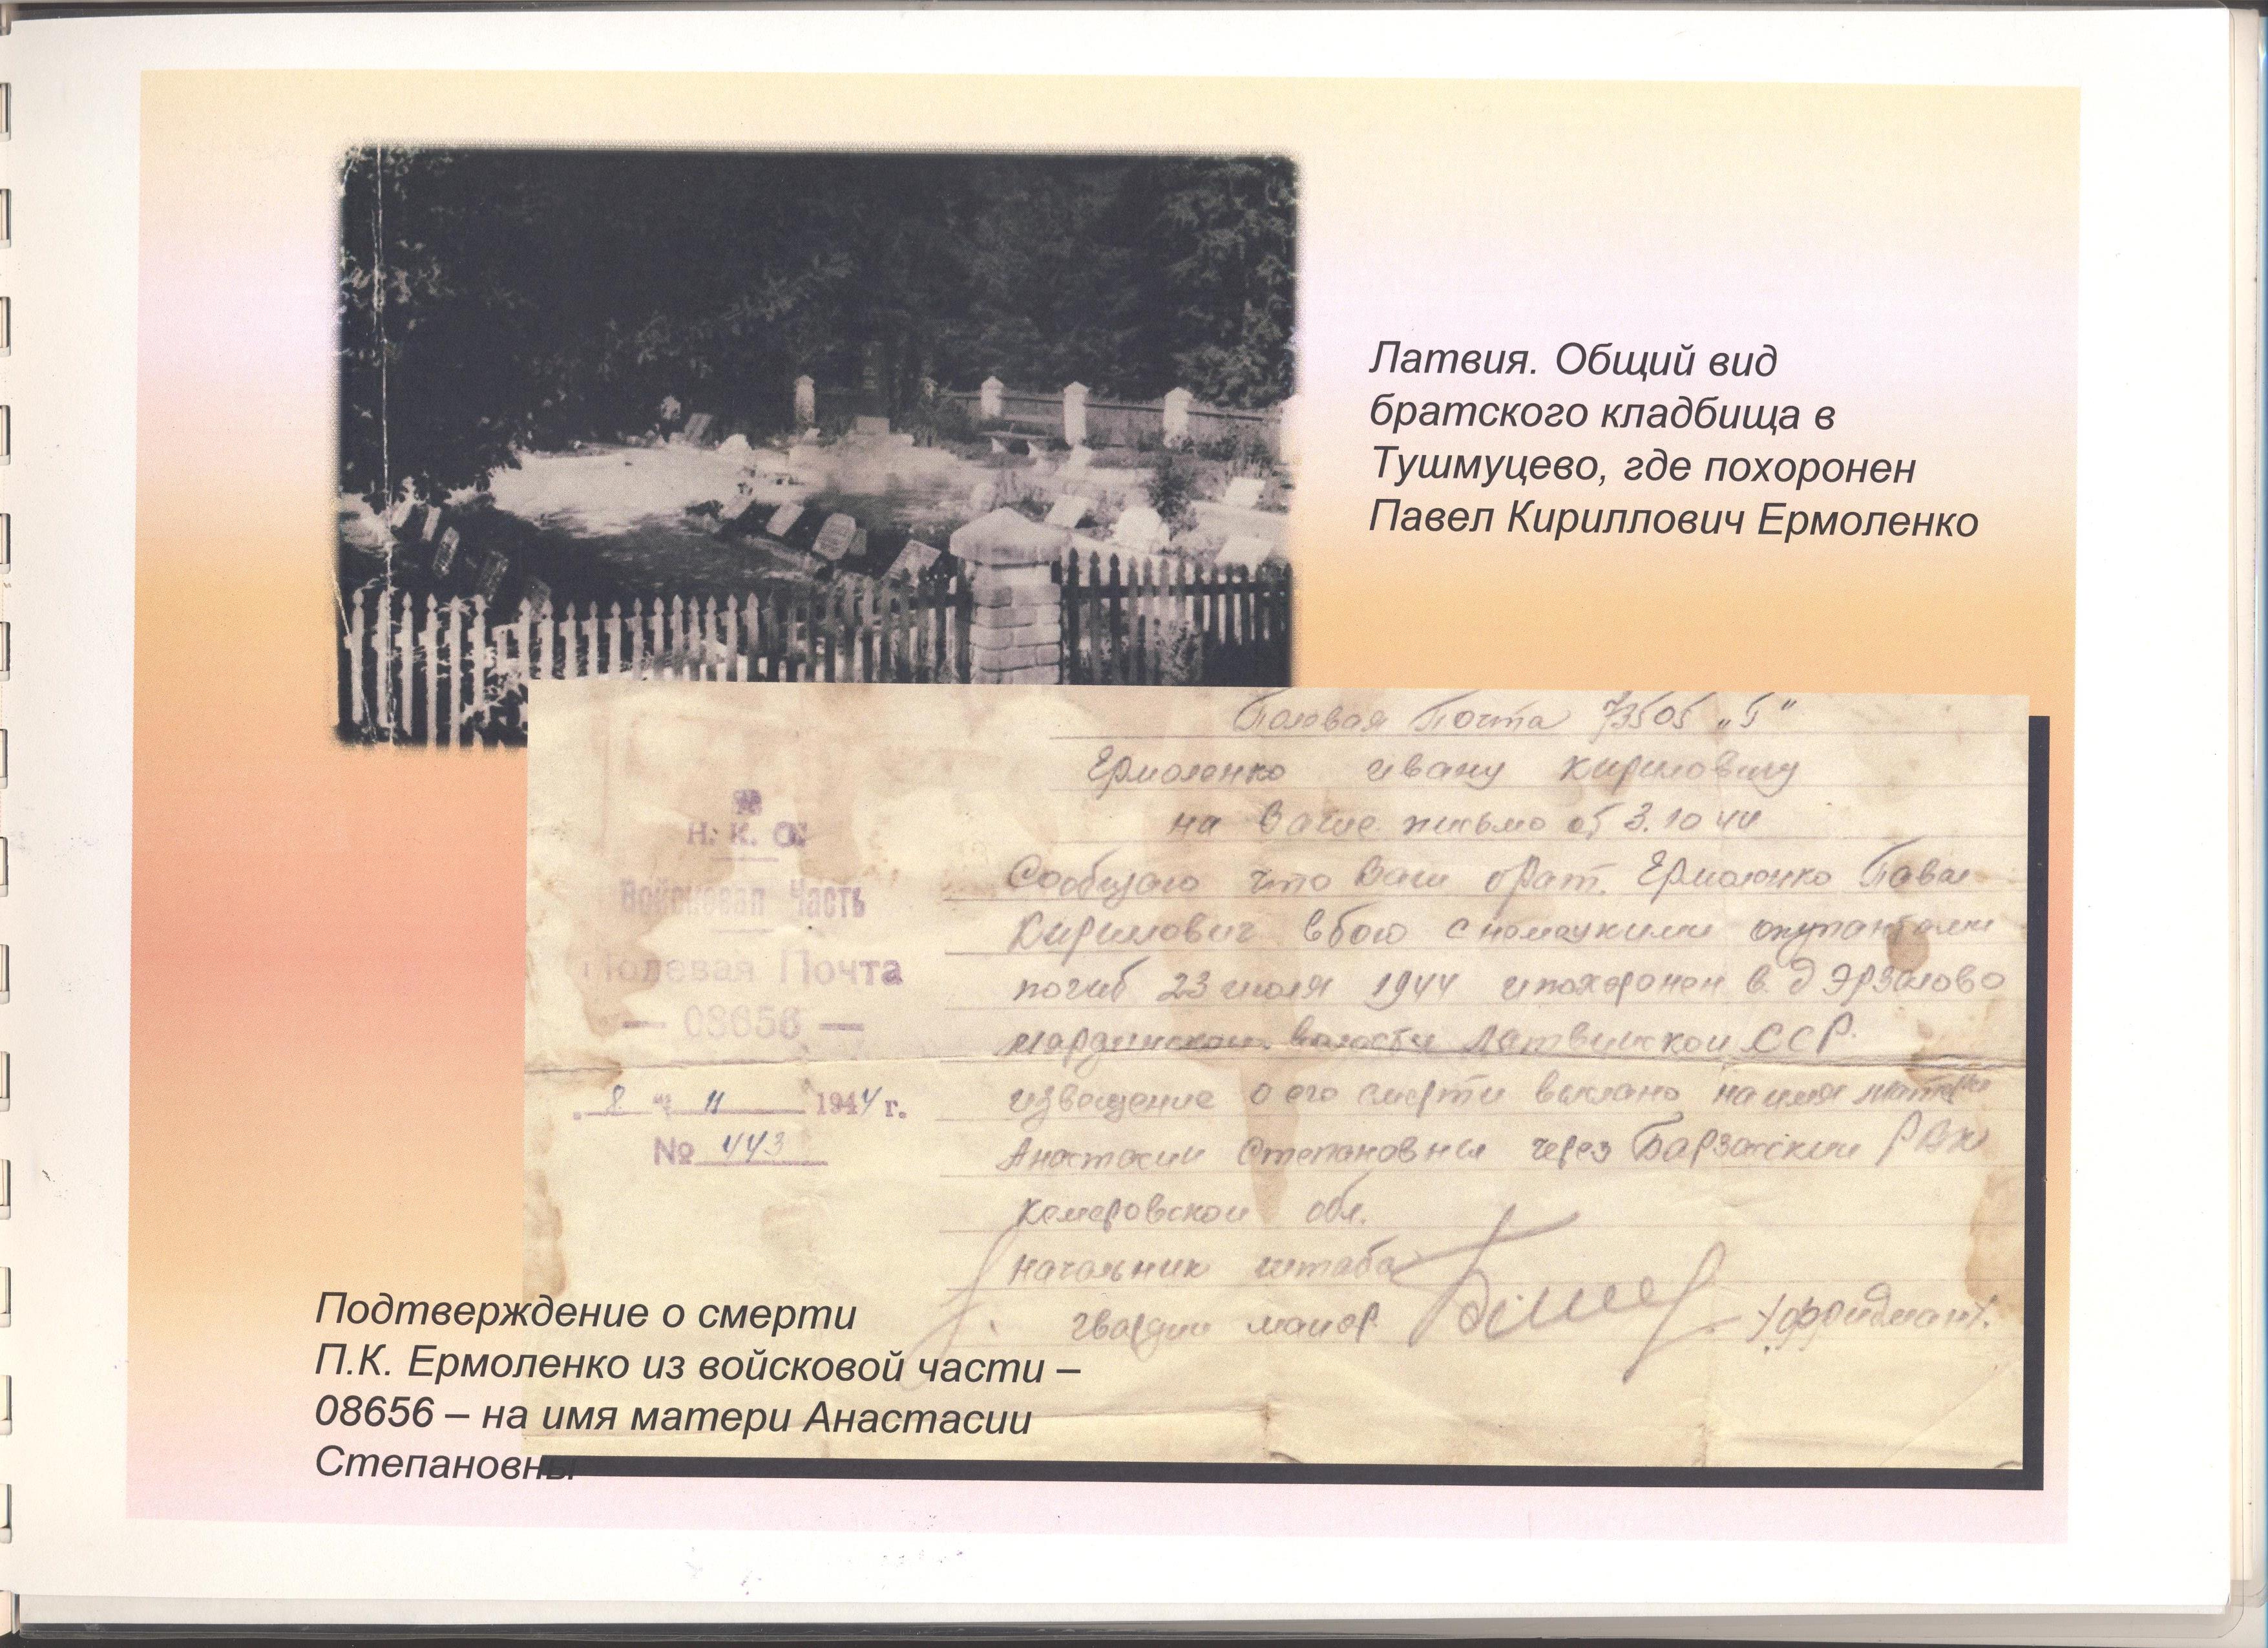 Латвия. Общий вид
братского кладбища в
Тушмуцево, где похоронен
Павел Кириллович Ермоленко
Полевая Почта 73505 „Б“
Ермоленко Ивану Кириловичу
на Ваше письмо от 3.10 44
Сообщаю что Ваш брат. Ермоленко Павел
Кирилович в бою с немецкими окупантами
погиб 23 июля 1944 и похоронен в. д Эрзалово
мардинской волости Латвийской ССР.
извещение о его смерти выслано на имя матери
Анастасии Степановны через Барзаский РВК
Кемеровской обл.
начальник штаба
гвардии майор /Фридман/.
Н. К. О.
Войсковая Часть
Полевая Почта
— 08656 —
„ 8 “ 11 1944 г.
№ 443
Подтверждение о смерти
П.К. Ермоленко из войсковой части –
08656 – на имя матери Анастасии
Степановны